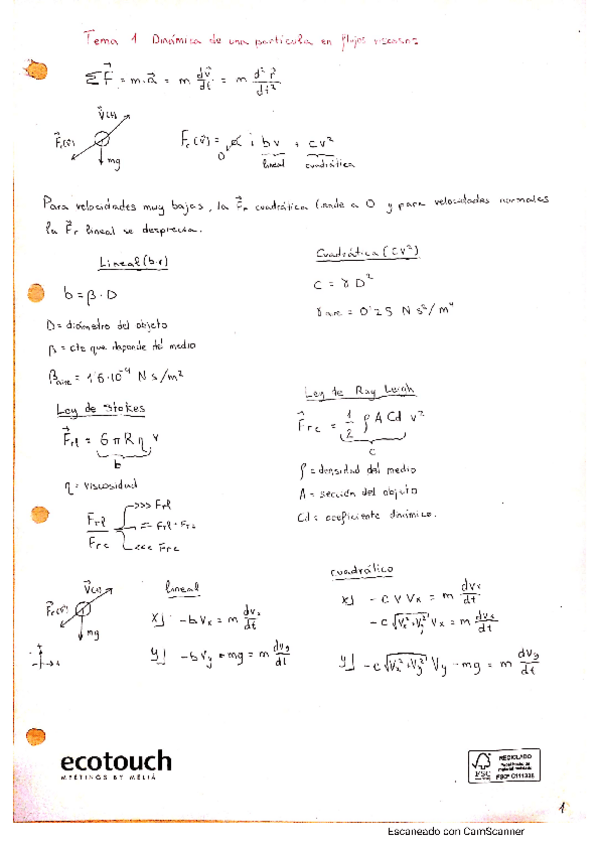 Tema 1 Dinámica de una partícula en flujos viscosos
ΣF⃗ = m·a⃗ = m dv⃗/dt = m d²r⃗/dt²
V⃗(t)
F⃗r(v⃗)
mg
Fr(v⃗) = α + bv + cv²
0
lineal cuadrática
Para velocidades muy bajas, la F⃗r cuadrática tiende a 0 y para velocidades normales
la F⃗r lineal se desprecia.
Lineal (b·v)
b = β·D
D = diámetro del objeto
β = cte que depende del medio
βaire = 1'6·10⁻⁴ N s/m²
Ley de Stokes
F⃗rl = 6πRη v
b
η = viscosidad
Frl/Frc
>>> Frl
== Frl + Frc
<<< Frc
Cuadrática (cv²)
C = γD²
γaire = 0'25 N s²/m⁴
Ley de Ray Leigh
F⃗rc = 1/2 ρ A Cd v²
C
ρ = densidad del medio
A = sección del objeto
Cd = coeficiente dinámico.
V⃗(t)
F⃗r(v⃗)
mg
lineal
x⌋ -bVx = m dvx/dt
y⌋ -bVy - mg = m dvy/dt
cuadrático
x⌋ -c V Vx = m dvx/dt
-c √(Vx²+Vy²) Vx = m dvx/dt
y⌋ -c √(Vx²+Vy²) Vy - mg = m dvy/dt
ecotouch
MEETINGS BY MELIÁ
FSC
RECICLADO
1
Escaneado con CamScanner